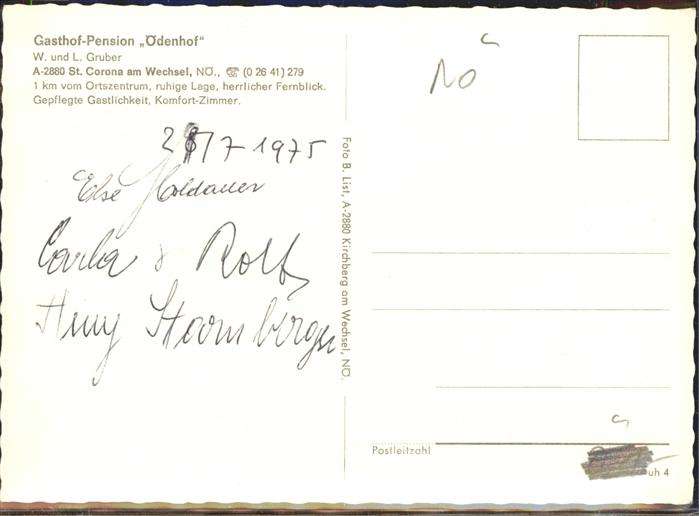 Gasthof-Pension „Ödenhof"
W. und L. Gruber
A-2880 St. Corona am Wechsel, NÖ., ☏ (0 26 41) 279
1 km vom Ortszentrum, ruhige Lage, herrlicher Fernblick.
Gepflegte Gastlichkeit, Komfort-Zimmer.
7 1975
Else
Carla & Rolf
Foto B. List, A-2880 Kirchberg am Wechsel, NÖ.
NÖ
Postleitzahl
uh 4